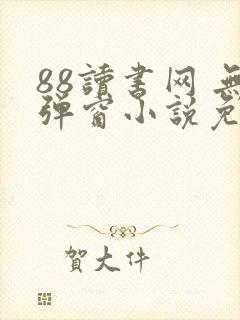 88讀書网 無
弹窗小説免
賀大件